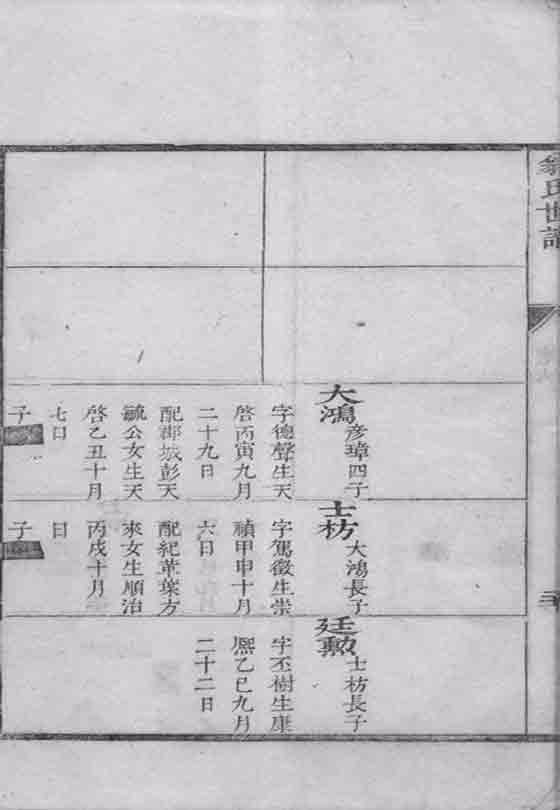 翁氏世譜
大鴻
彦瑋四子
字德聲生天
啓丙寅九月
二十九日
配郡城彭天
毓公女生天
啓乙丑十月
七日
子
士枋
大鴻長子
字駕徵生崇
禎甲申十月
六日
配紀葦葉方
來女生順治
丙戌十月
日
子
廷勲
士枋長子
字丕樹生康
熙乙巳九月
二十二日